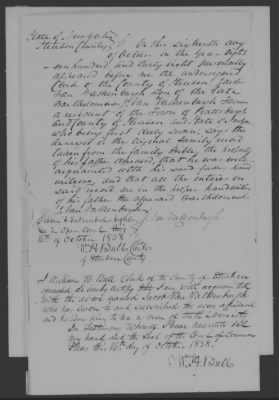 State of New York
Steuben County
On this sixteenth day
of October in the year Eight
-een hundred and thirty eight personally
appeared before me the undersigned
Clerk of the County of Steuben Jacob
Van Valkenburgh Son of the late
Bartholomew Van Valkenburgh
a resident of the Town of
County of Steuben and State of
who being first duly sworn, says the
is the original family record
taken from the family Bible the property
of his father deceased, that he was well
acquainted with his said father's hand
writing, and that all the entries on
said record are in the proper handwriting
of his father the aforesaid Bartholomew
Van Valkenburgh
Sworn & subscribed before
me in Open Court this
16th of October 1838
W. H. Bull Clerk
of Steuben County
I William H. Bull Clerk of the County of Steuben
do hereby certify that I am well acquainted
with the above named Jacob Van Valkenburgh
who has sworn to and subscribed the above affidavit
and believe him to be a man of truth
In Testimony Whereof I have hereunto set
my hand and the Seal of the Court of Common
Pleas this 16th day of October 1838.
W. H. Bull